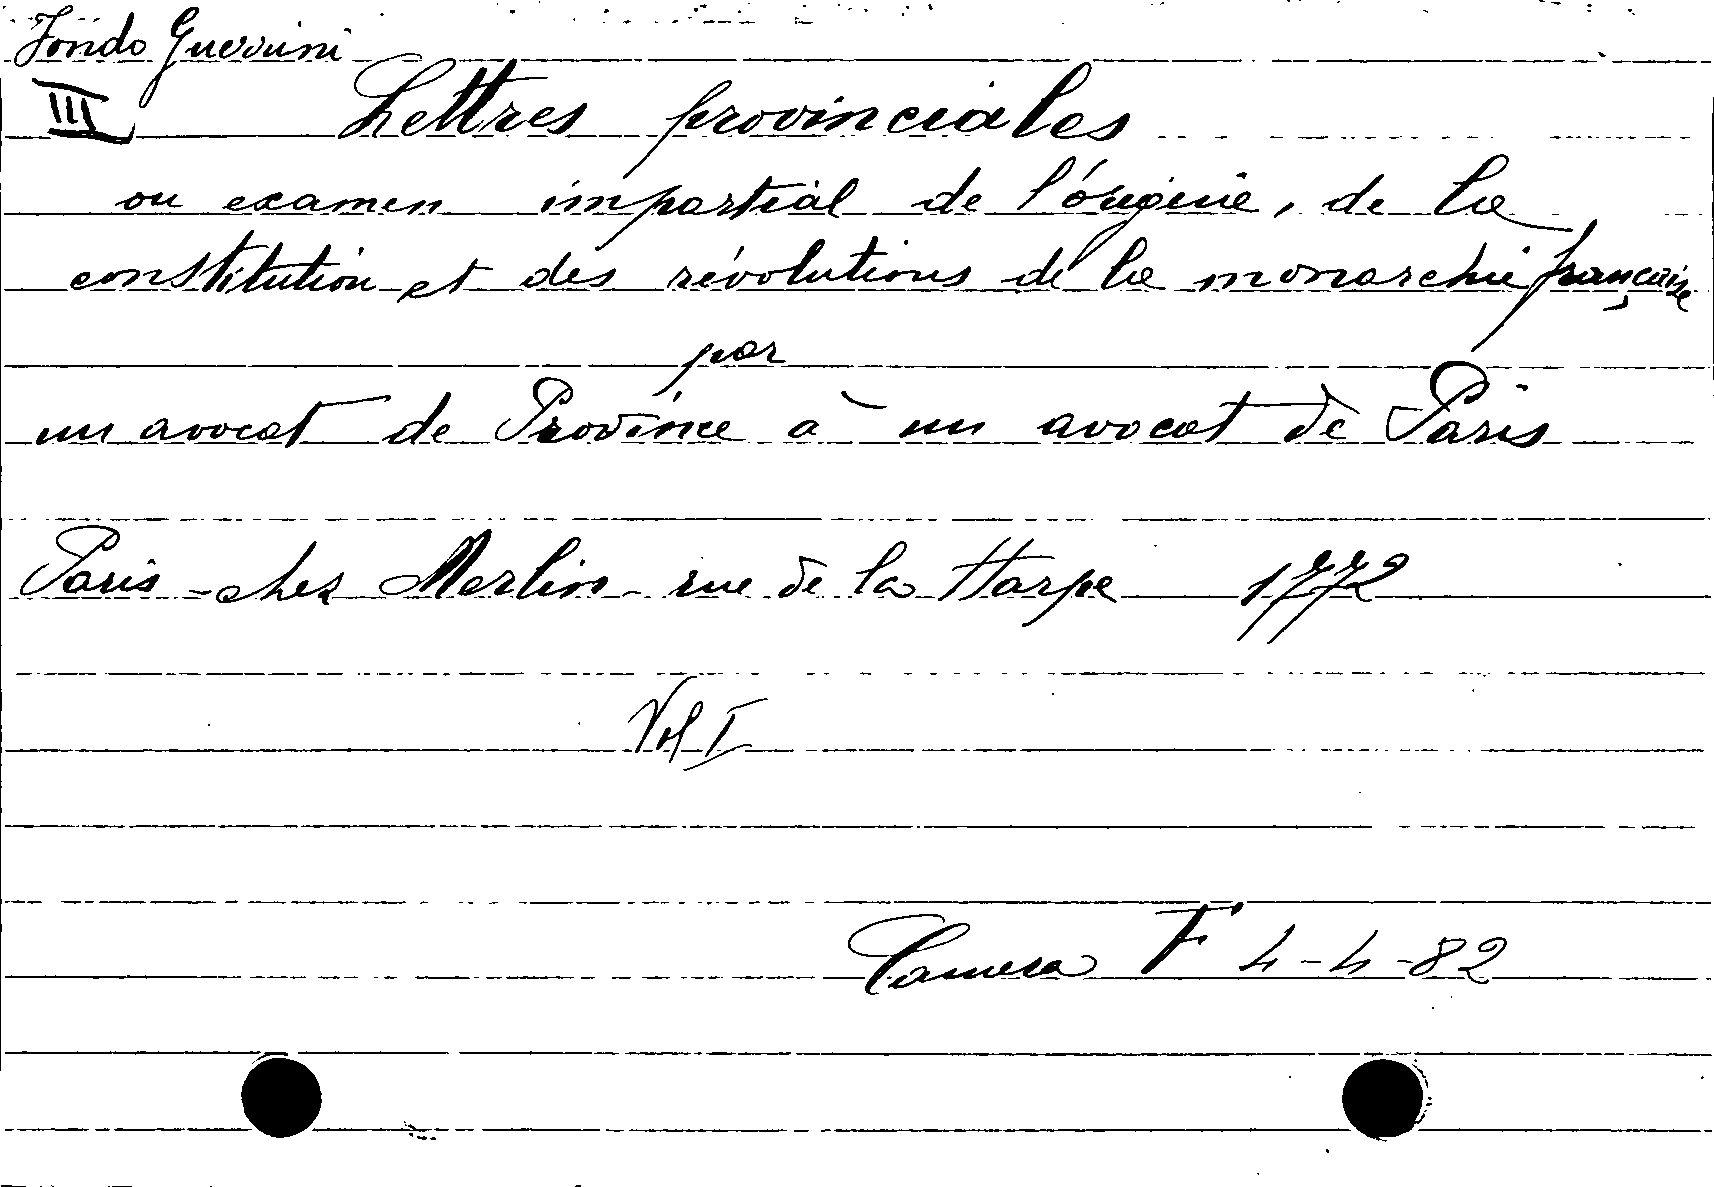 Fondo Guerrini
III Lettres provinciales
ou examen impartial de l'origine, de la
constitution et des révolutions de la monarchie française
par
un avocat de Province à un avocat de Paris
Paris - chez Merlin - rue de la Harpe 1772
Vol I
Camera F 4-4-82